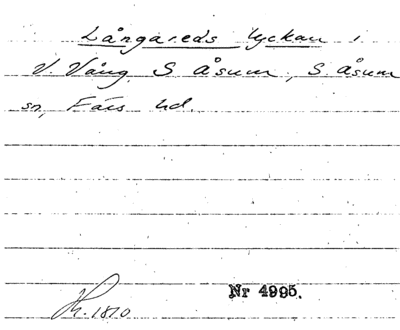 Långareds lyckan i
V. Vång S Åsum, S. Åsum
sn, Färs hd.
Nr 4995.
1810